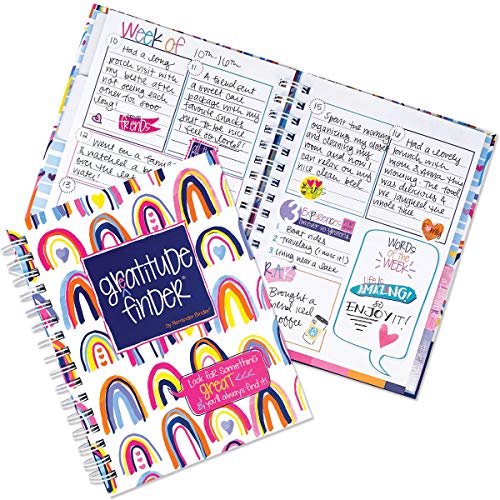 Week of
10th-16th
10
Had a long
porch visit with
my bestie after
not seeing each
other for sooo
long!
FRIENDS
11
A friend sent
a sweet little
package with my
favorite snacks
just to be nice
I feel so loved!
12
Went on a
& watched a
13
15
Spent the morning
organizing my closet
and cleaning my
room and now I
can relax on my
nice clean bed
14
Had a lovely
brunch with
mom & guava this
morning. The food
was delicious &
I laughed the
whole time
3
EXPERIENCES
1 Boat rides
2 Traveling (I miss it!)
3 Living near a lake
R.A.K.
Brought a
friend iced
coffee
WORDS
OF THE
WEEK
life is
AMAZING!
so
ENJOY IT!
gratitude
finder®
by Reminder Binder®
Look for something
great
& you'll always find it!